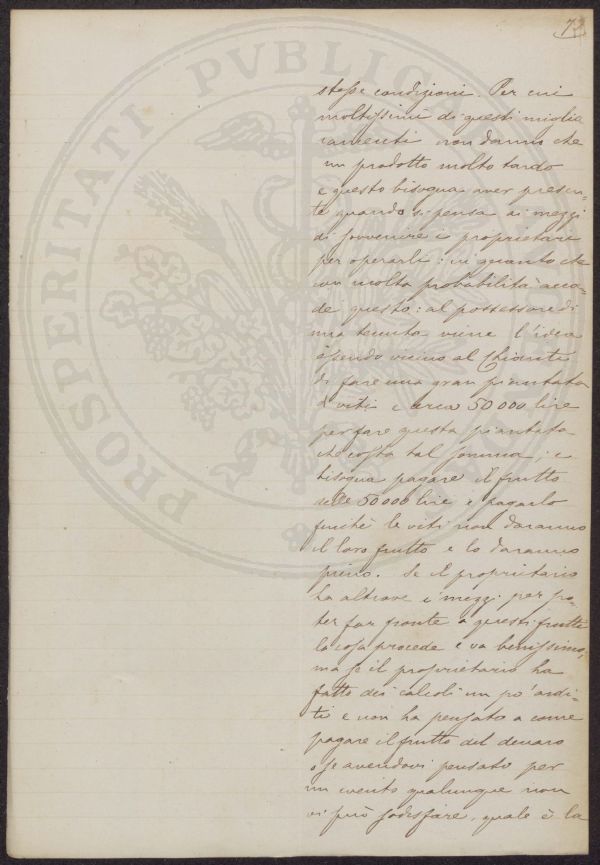 73
stesse condizioni. Per cui
moltissimi di questi miglio
ramenti non danno che
un prodotto molto tardo
e questo bisogna aver presen-
te quando si pensa ai mezzi
di sovvenire i proprietari
per operarli: in quanto che
con molta probabilità acca-
de questo: al possessore di
una tenuta viene l'idea
essendo vicino al Chianti
di fare una gran piantata
di viti e cerca 50 000 lire
per fare questa piantata
che costa tal somma; e
bisogna pagare il frutto
delle 50 000 lire e pagarlo
finchè le viti non daranno
il loro frutto e lo daranno
pieno. Se il proprietario
ha altrove i mezzi per po-
ter far fronte a questi frutti
la cosa procede e va benissimo,
ma se il proprietario ha
fatto dei calcoli un po' ardi-
ti e non ha pensato a come
pagare il frutto del denaro
o se avendovi pensato per
un evento qualunque non
vi può sodisfare, quale è la
PROSPERITATI PVBLICAE